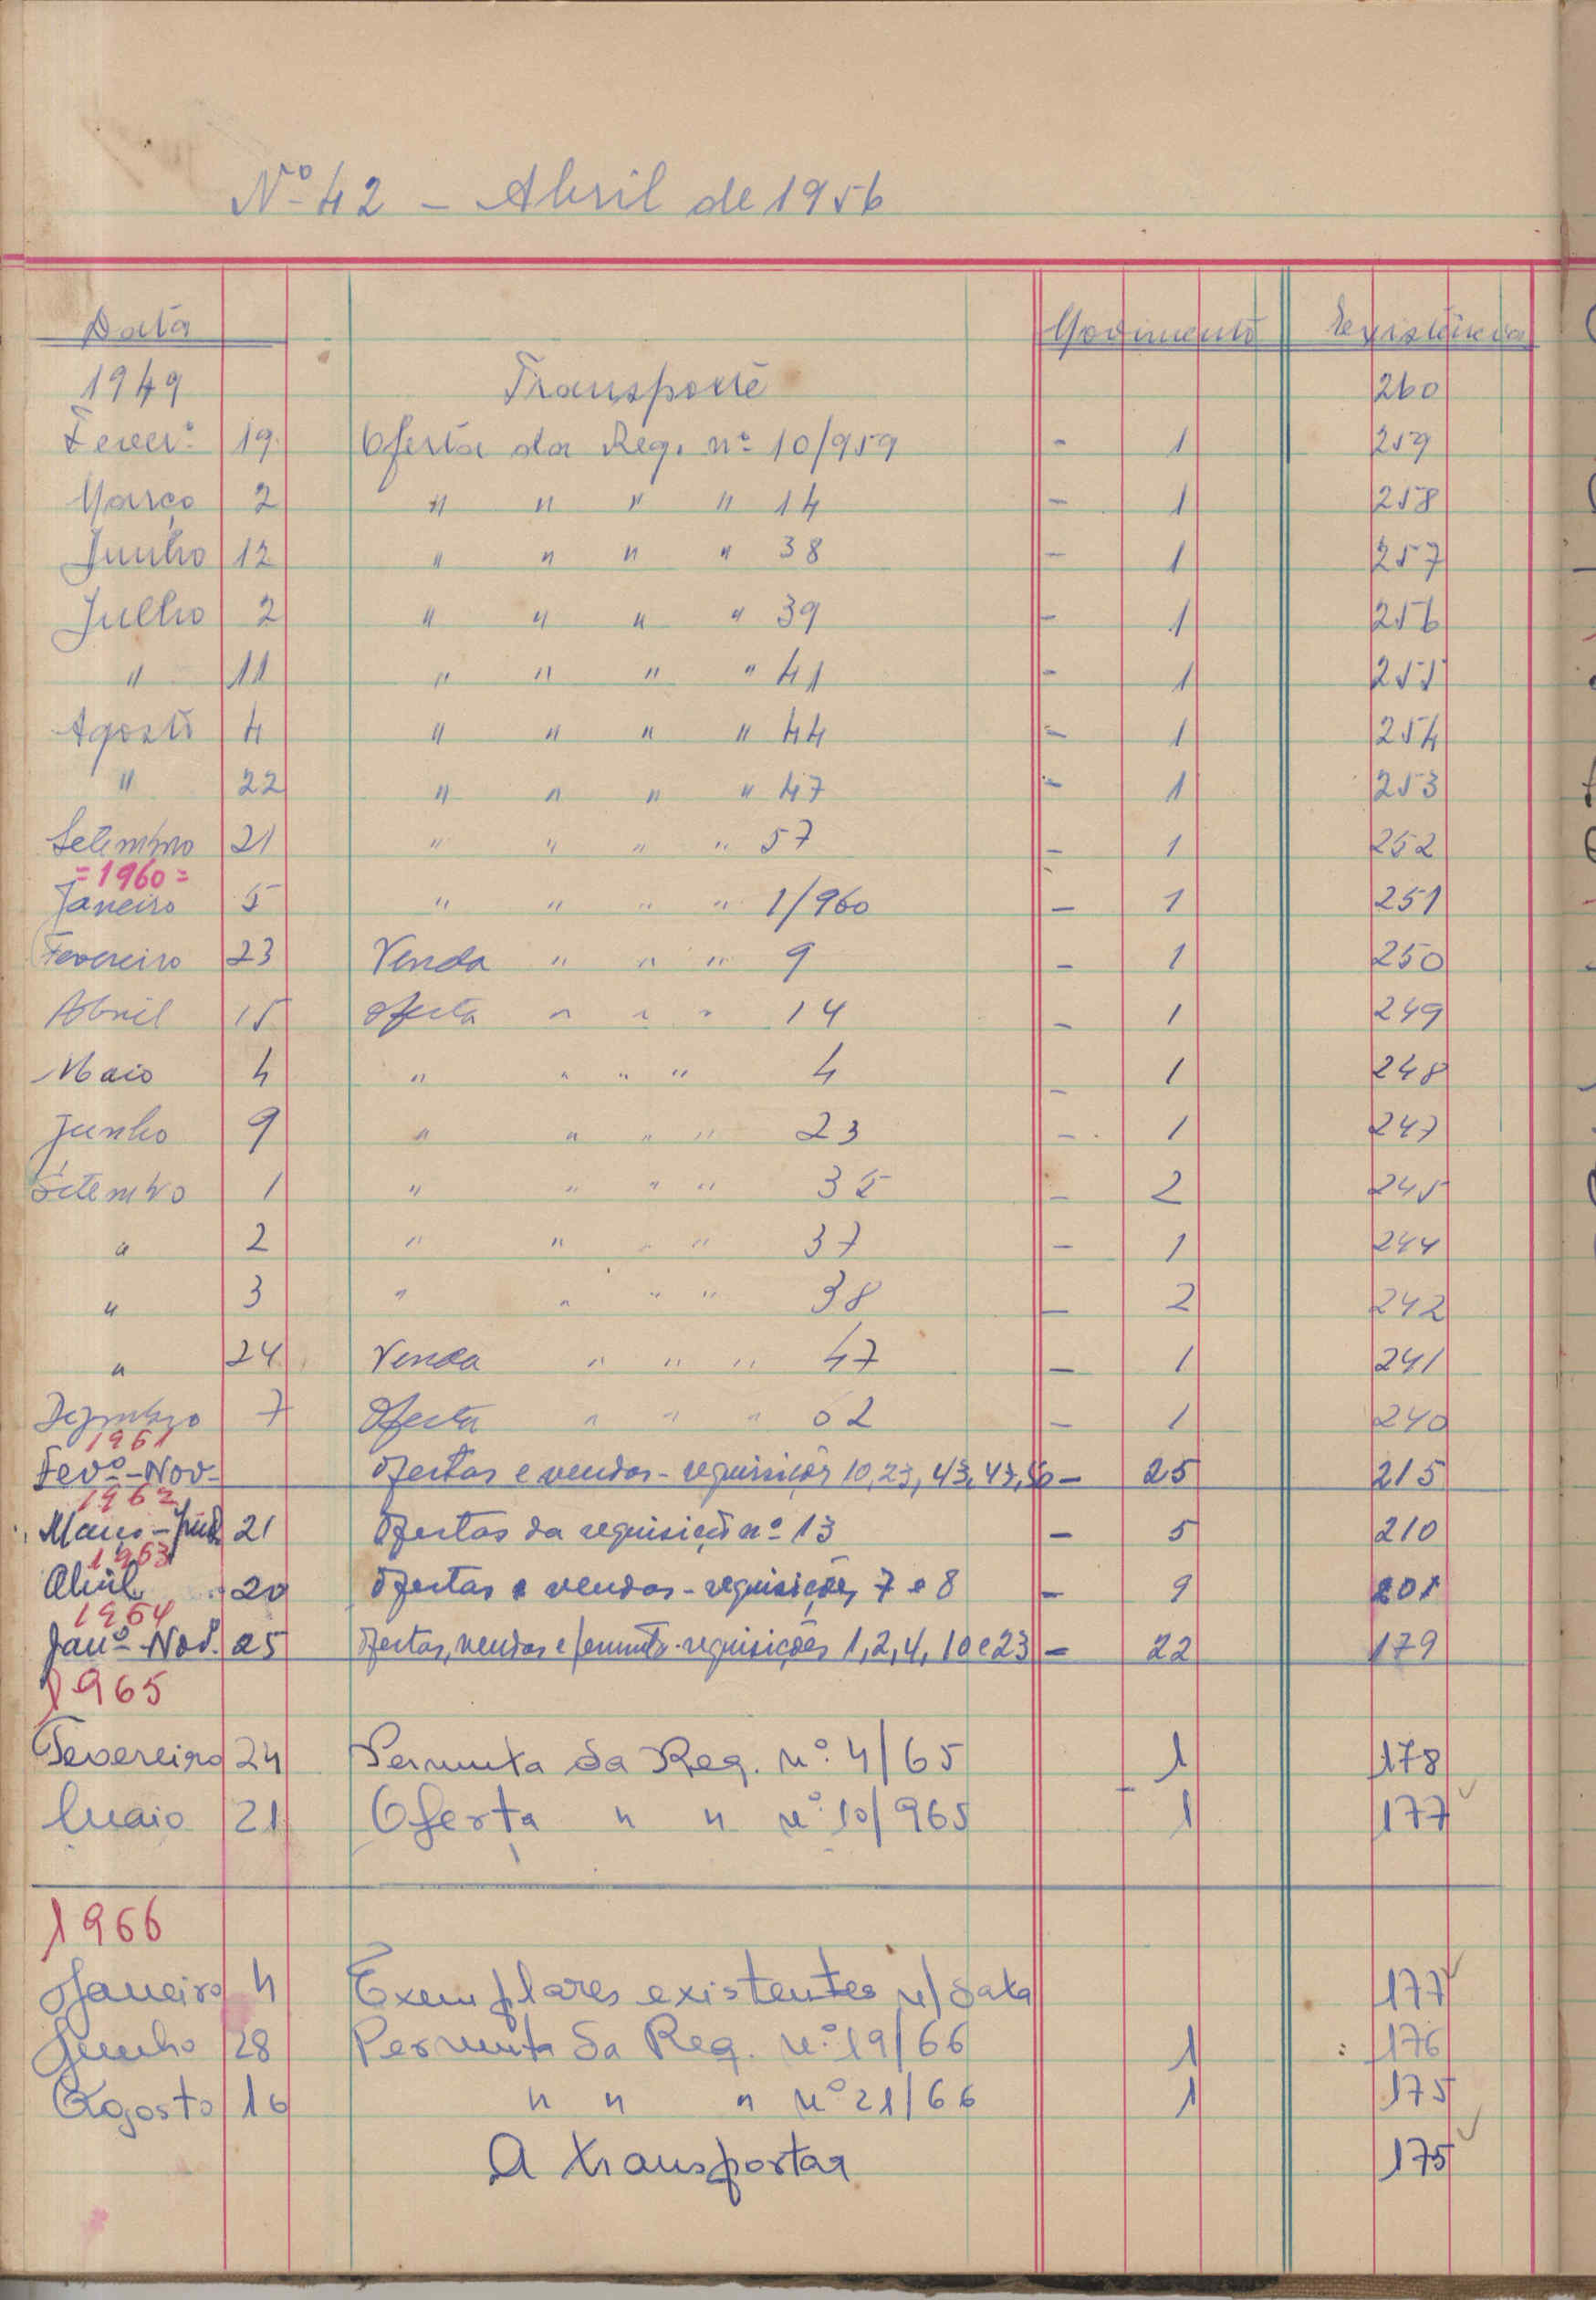 Nº 42 - Abril de 1956
Data Movimento Existência
1949 Transporte 260
Fever.º 19 Oferta da Req. nº 10/959 - 1 259
Março 2 " " " " 14 - 1 258
Junho 12 " " " " 38 - 1 257
Julho 2 " " " " 39 - 1 256
" 11 " " " " 41 - 1 255
Agosto 4 " " " " 44 - 1 254
" 22 " " " " 47 - 1 253
Setembro 21 " " " " 57 - 1 252
=1960=
Janeiro 5 " " " " 1/960 - 1 251
Fevereiro 23 Venda " " " 9 - 1 250
Abril 15 Oferta " " " 14 - 1 249
Maio 4 " " " " 4 - 1 248
Junho 9 " " " " 23 - 1 247
Setembro 1 " " " " 35 - 2 245
" 2 " " " " 37 - 1 244
" 3 " " " " 38 - 2 242
" 24 Venda " " " 47 - 1 241
Dezembro 7 Oferta " " " 62 - 1 240
1961
Fevº-Nov- Ofertas e vendas - requisições 10, 23, 43, 47, 50 - 25 215
1962
Março - 21 Ofertas da requisição nº 13 - 5 210
1963
Abril 20 Ofertas e vendas - requisições 7 e 8 - 9 201
1964
Janº-Nov. 25 Ofertas, vendas e permuta - requisições 1, 2, 4, 10 e 23 - 22 179
1965
Fevereiro 24 Permuta da Req. nº 4/65 1 178
Maio 21 Oferta " " nº 10/965 - 1 177
1966
Janeiro 4 Exemplares existentes n/data 177
Junho 28 Permuta da Req. nº 19/66 1 176
Agosto 16 " " " nº 21/66 1 175
A transportar 175